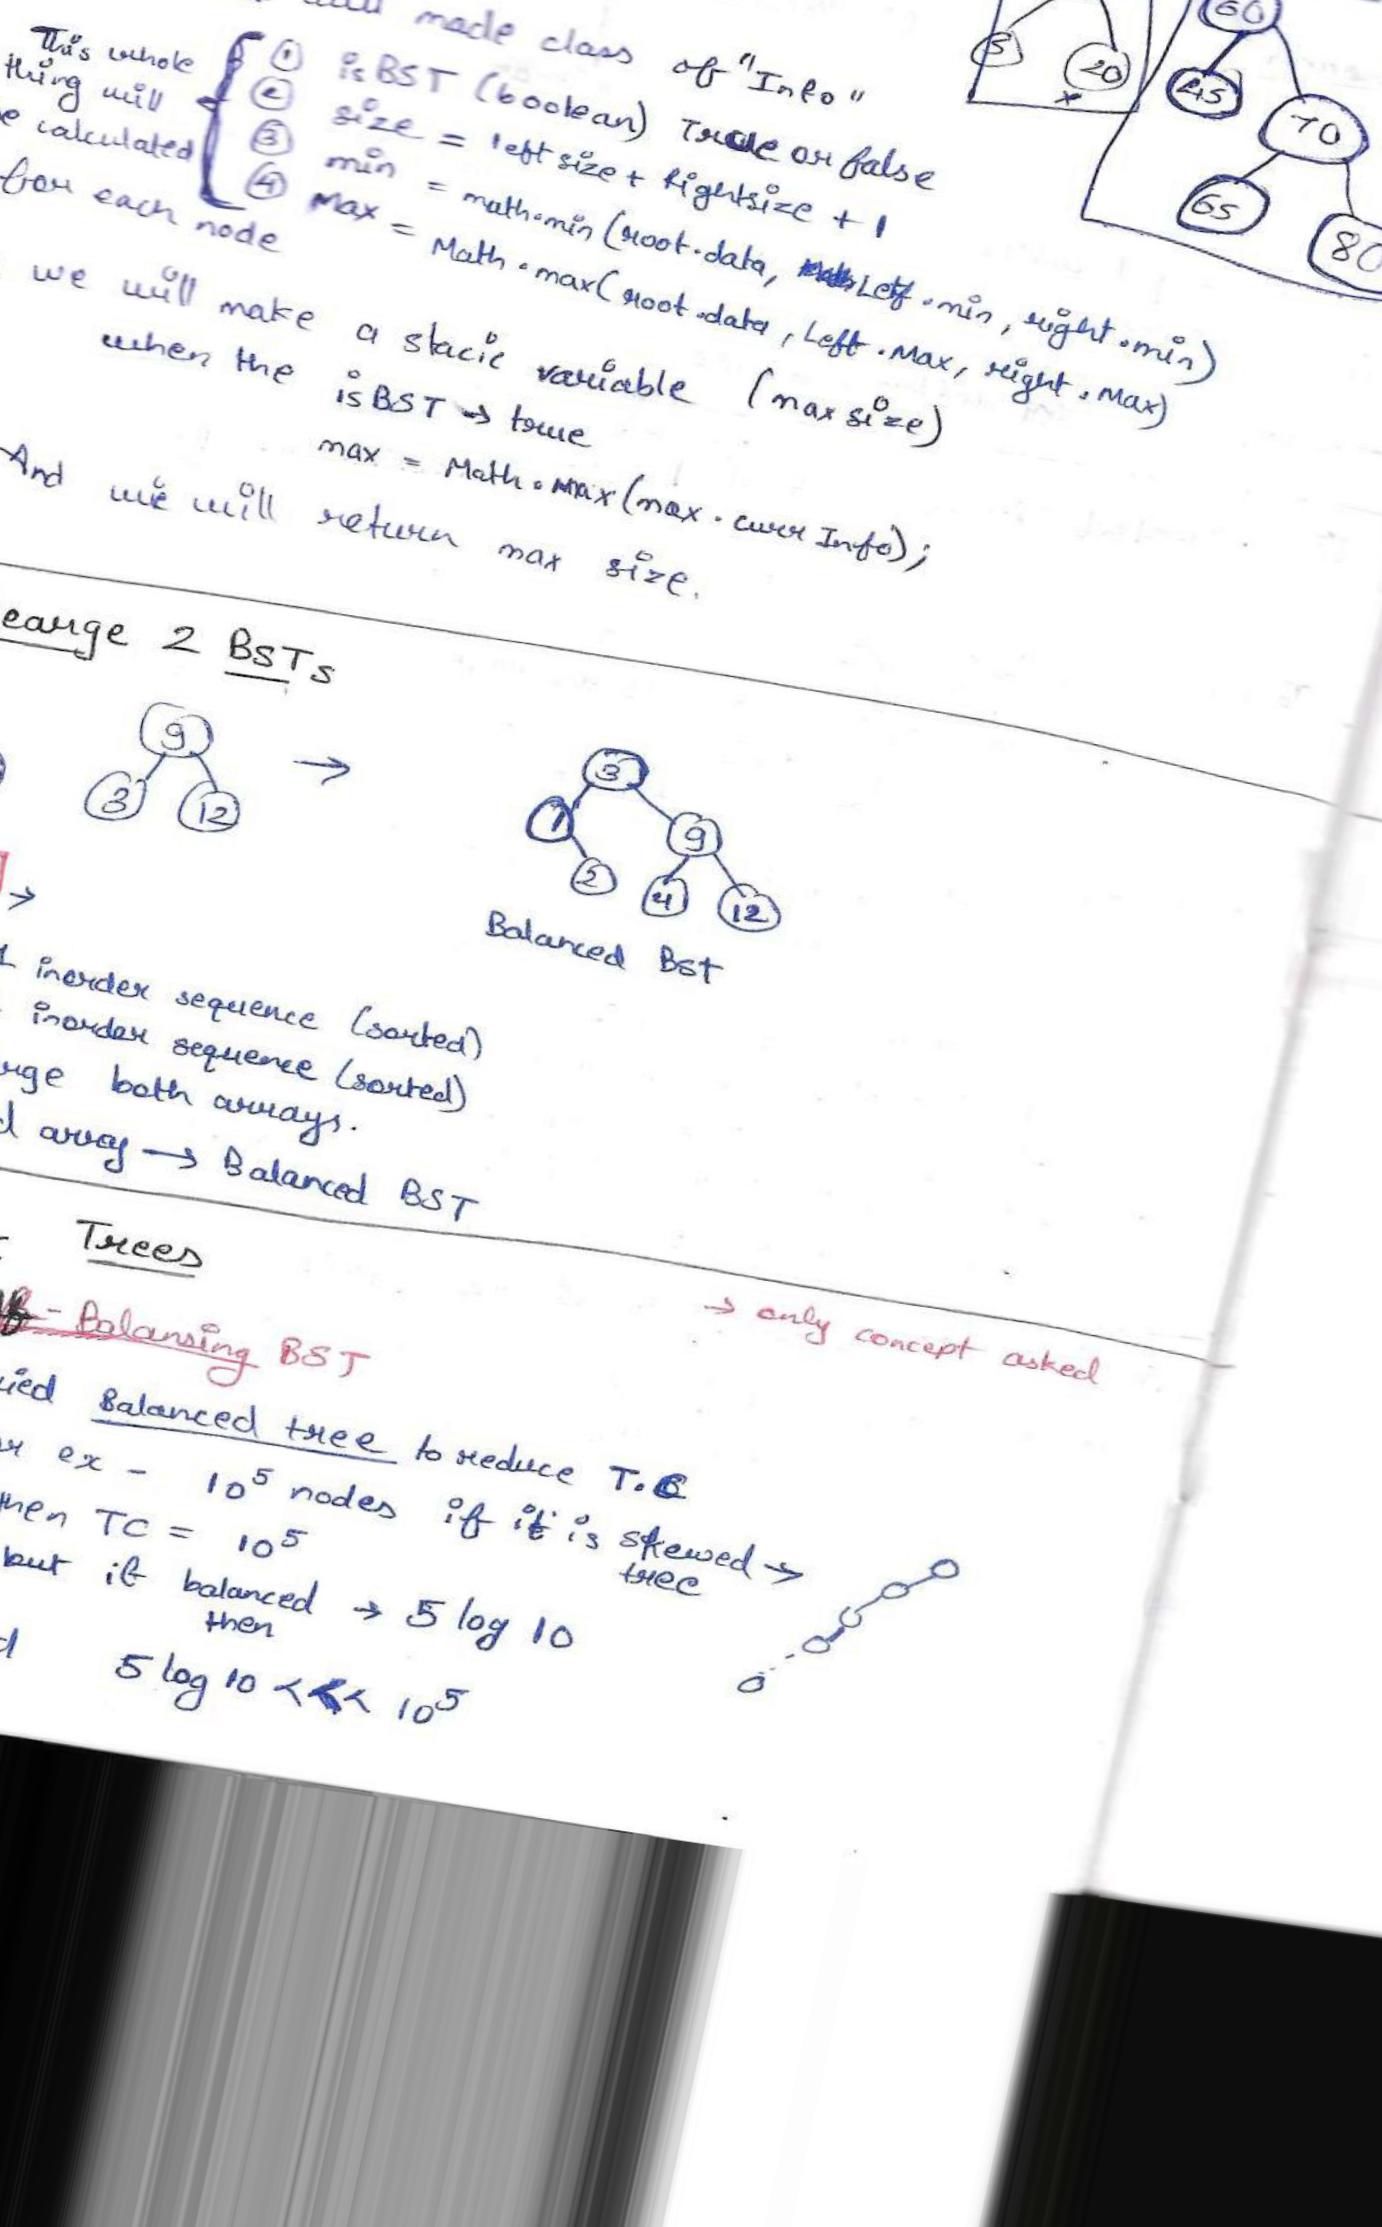 made class of "Info"
This whole thing will
calculated
for each node
① isBST (boolean) True or false
② size = leftsize + Rightsize + 1
③ min = math.min (root.data, Left.min, right.min)
④ Max = Math.max( root.data, Left.Max, right.Max)
we will make a static variable (maxsize)
when the isBST → true
max = Math.max (max.curr Info);
And we will return max size.
2 BSTs
9
3 12
→
3
1 9
2 4 12
Balanced Bst
→
inorder sequence (sorted)
inorder sequence (sorted)
both arrays.
array → Balanced BST
Trees
- Balansing BST
→ only concept asked
Balanced tree to reduce T.C
ex - 10⁵ nodes if it is skewed tree →
TC = 10⁵
but if balanced then → 5 log 10
5 log 10 <<< 10⁵
5 20
x
60
45 70
65 80